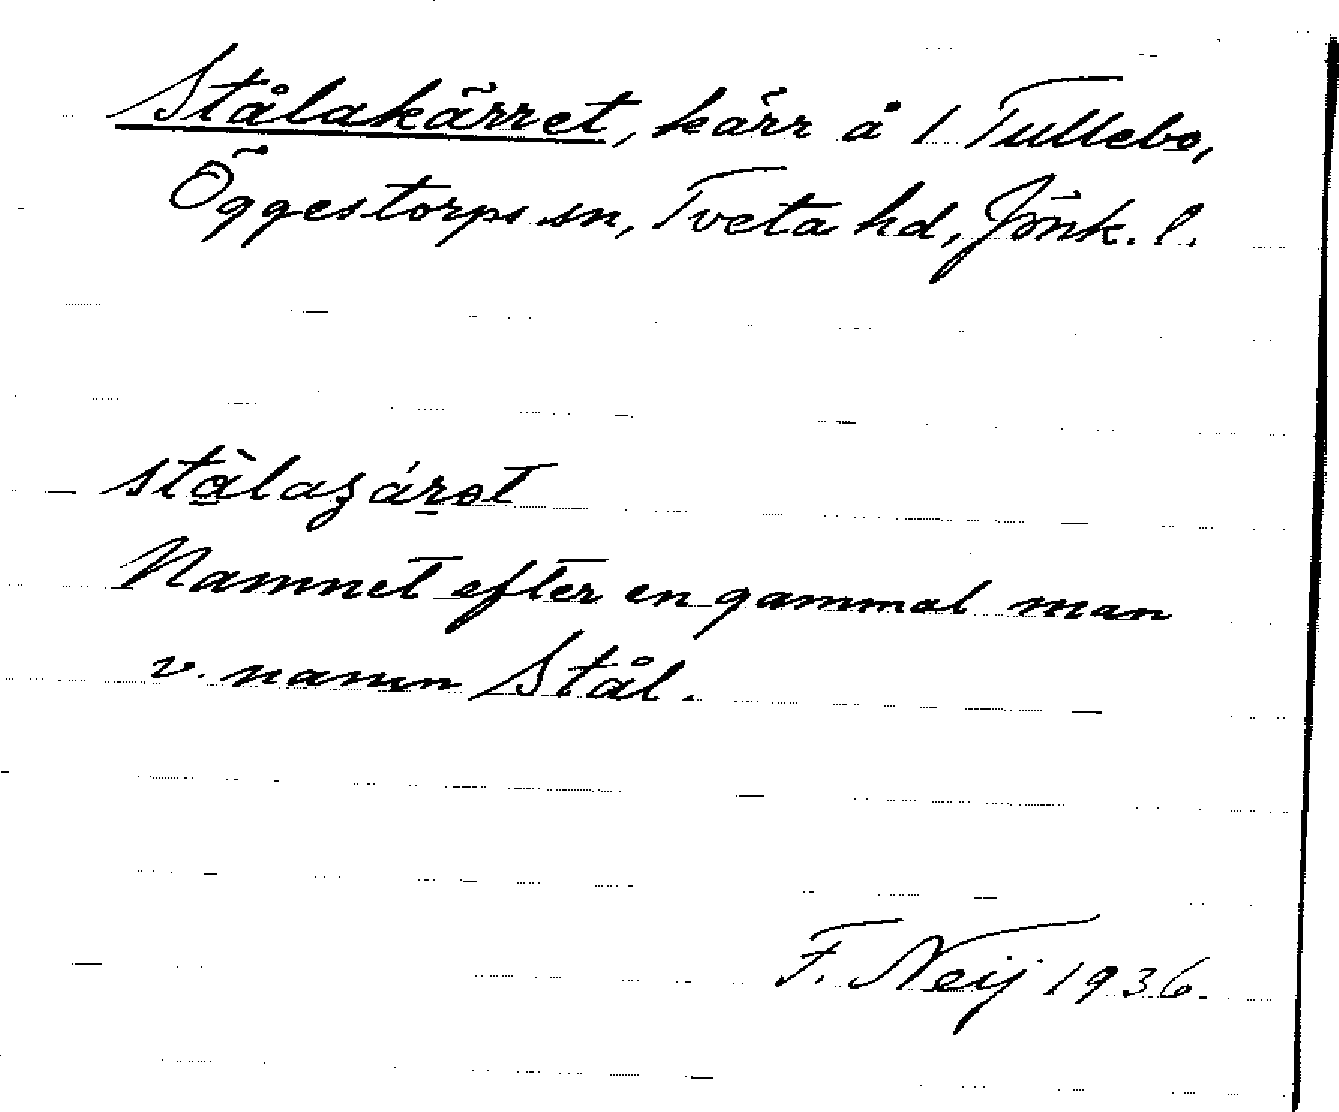 Stålakärret, kärr å 1 Tullebo,
Öggestorps sn, Tveta hd, Jönk. l.
Namnet efter en gammal man
v. namn Stål.
F. Neij 1936.